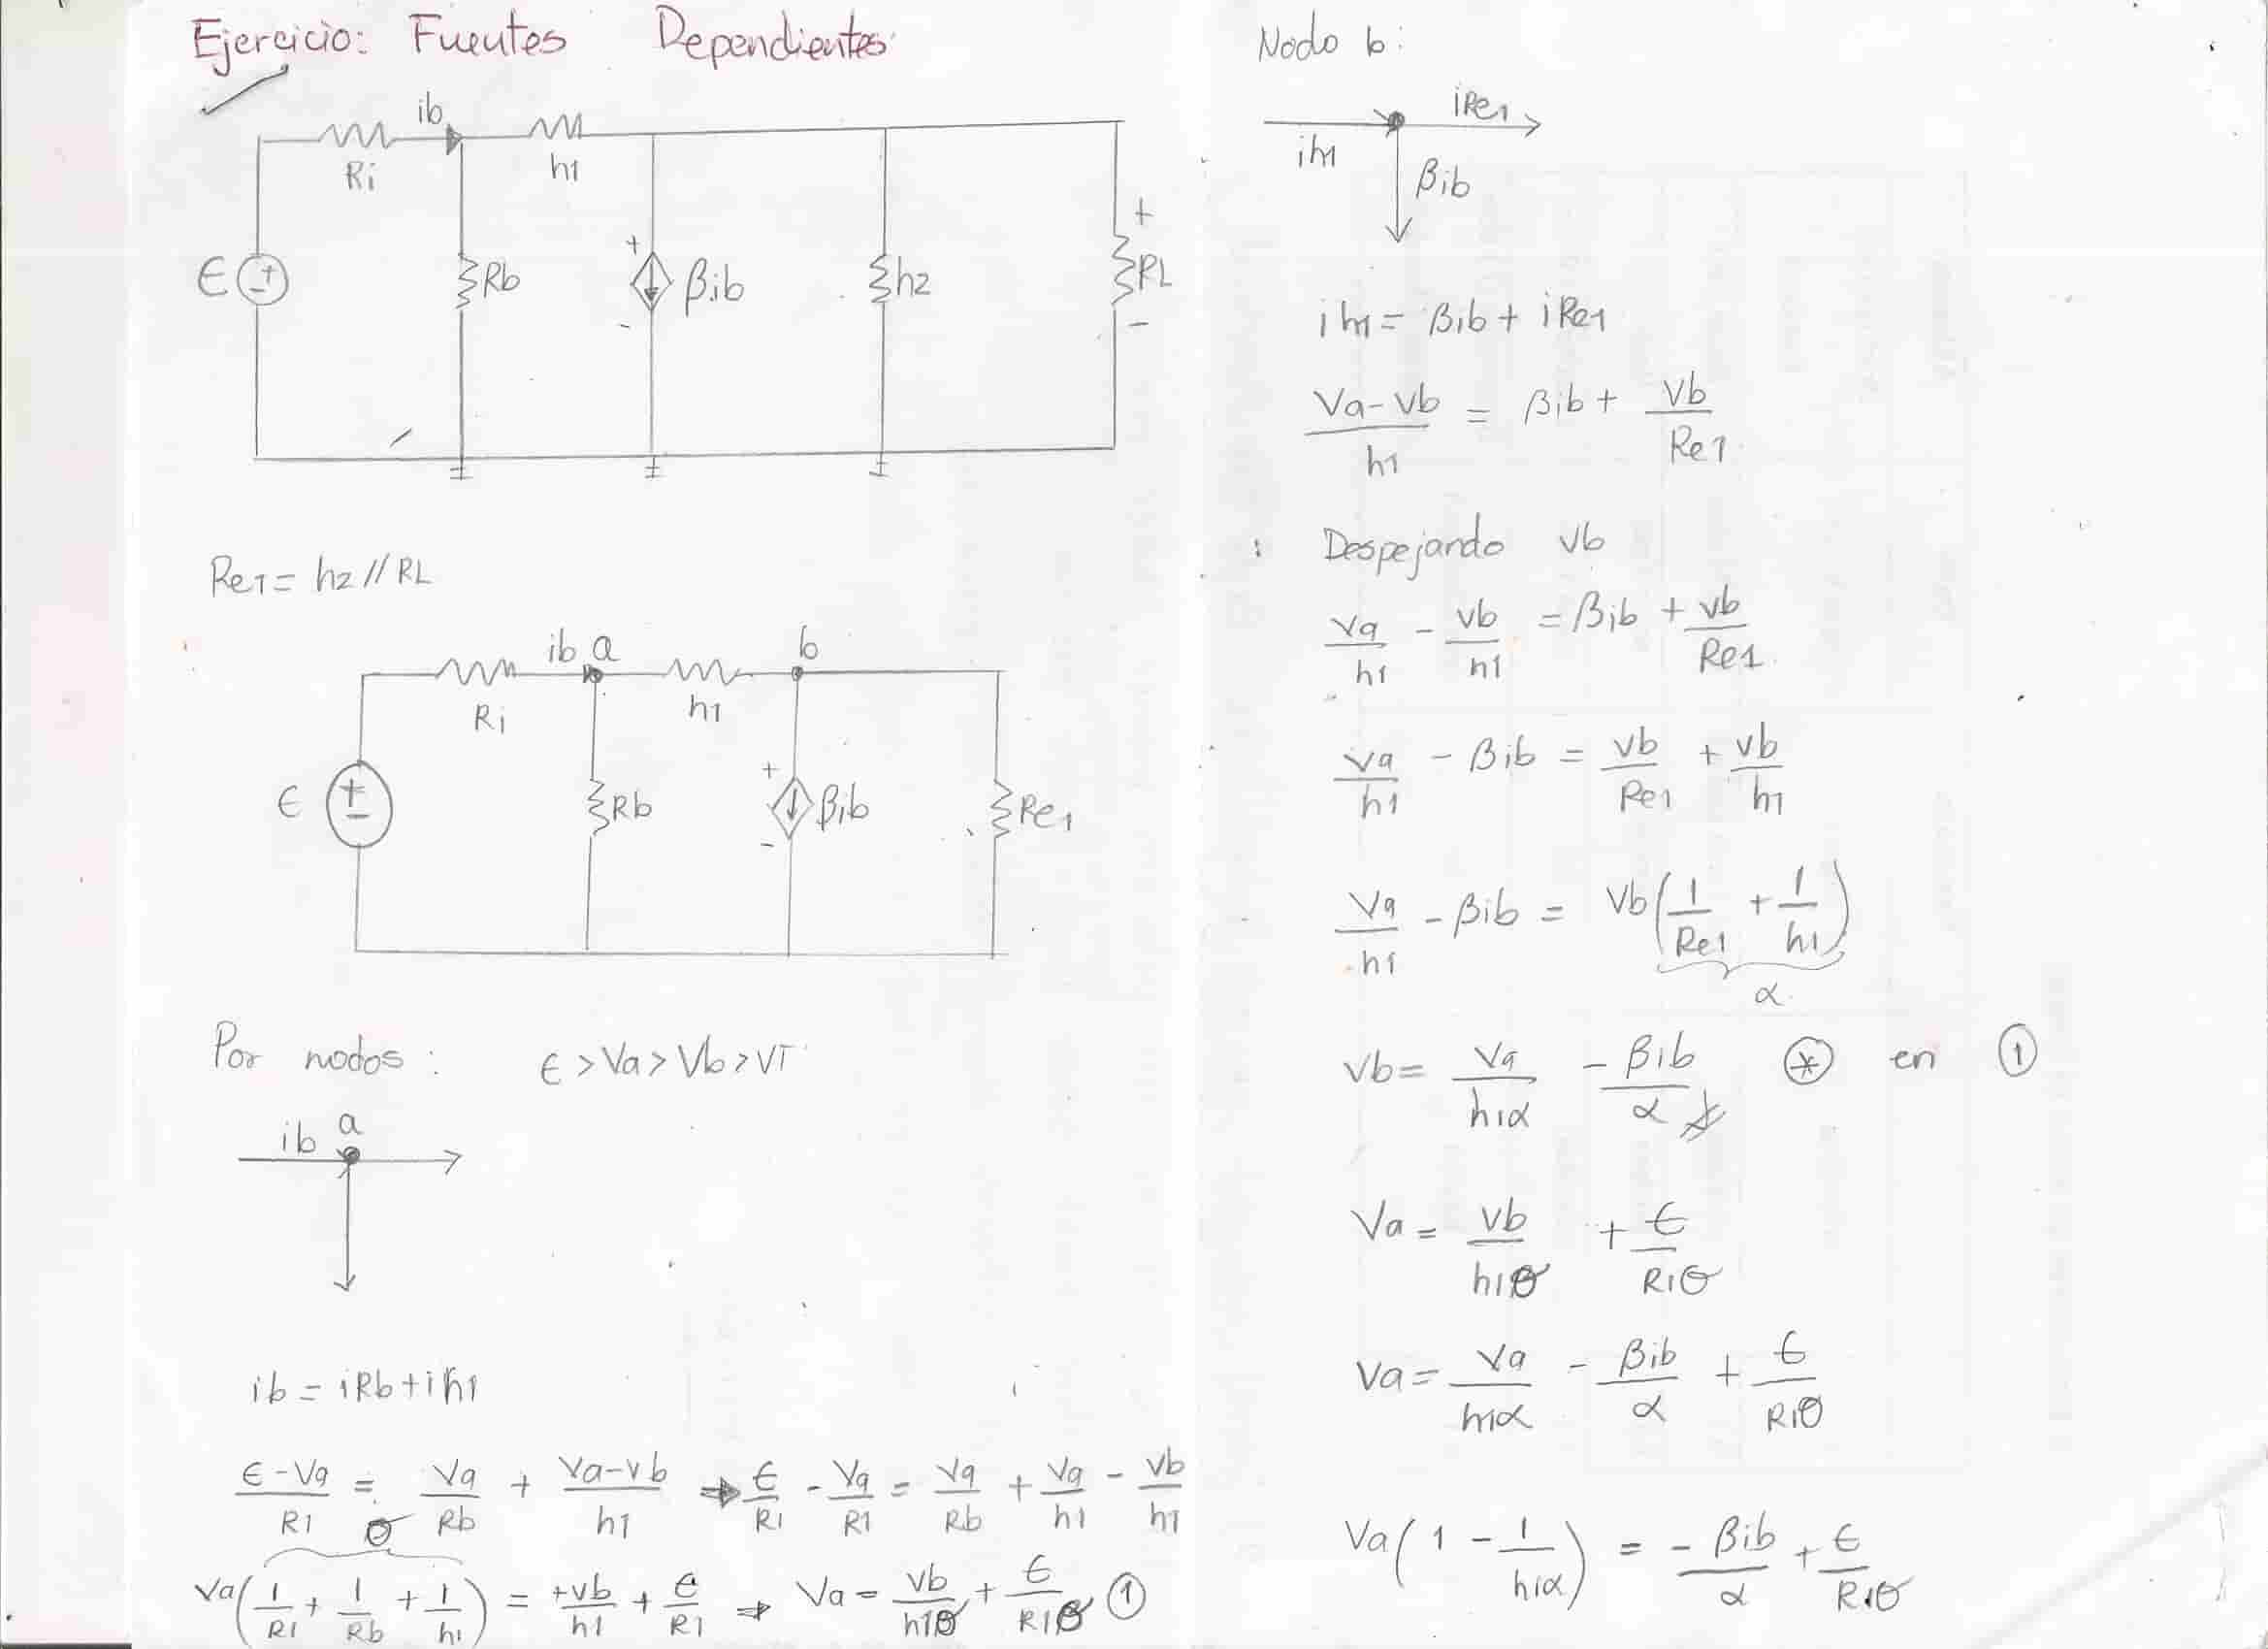 Ejercicio: Fuentes Dependientes
ib
Ri
h1
ϵ
+
-
Rb
+
-
βib
h2
+
RL
-
Re1 = h2 // RL
ib a
b
Ri
h1
ϵ
+
-
Rb
+
-
βib
Re1
Por nodos: ϵ > Va > Vb > VT
ib a
ib = iRb + ih1
(ϵ - Va)/R1 = Va/Rb + (Va - Vb)/h1 ⇒ ϵ/R1 - Va/R1 = Va/Rb + Va/h1 - Vb/h1
θ
Va(1/R1 + 1/Rb + 1/h1) = +Vb/h1 + ϵ/R1 ⇒ Va = Vb/h1θ + ϵ/R1θ ①
Nodo b:
iRe1
ih1
βib
ih1 = βib + iRe1
(Va - Vb)/h1 = βib + Vb/Re1
: Despejando Vb
Va/h1 - Vb/h1 = βib + Vb/Re1
Va/h1 - βib = Vb/Re1 + Vb/h1
Va/h1 - βib = Vb(1/Re1 + 1/h1)
α
Vb = Va/h1α - βib/α ⊛ en ①
Va = Vb/h1θ + ϵ/R1θ
Va = Va/h1α - βib/α + ϵ/R1θ
Va(1 - 1/h1α) = - βib/α + ϵ/R1θ